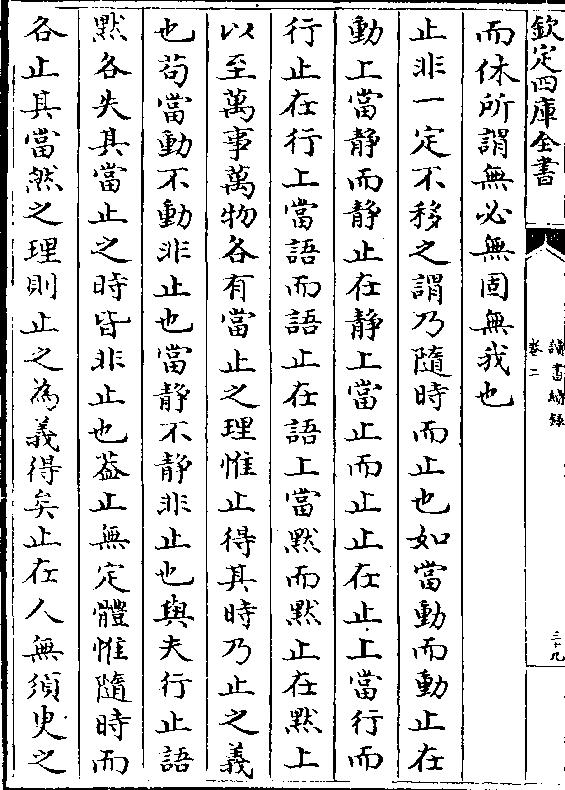 欽定四庫全書
讀書續録
卷二
三十九
而休所謂無必無固無我也
止非一定不移之謂乃隨時而止也如當動而動止在
動上當静而静止在静上當止而止止在止上當行而
行止在行上當語而語止在語上當黙而黙止在黙上
以至萬事萬物各有當止之理惟止得其時乃止之義
也苟當動不動非止也當静不静非止也與夫行止語
黙各失其當止之時皆非止也葢止無定體惟隨時而
各止其當然之理則止之為義得矣止在人無須臾之